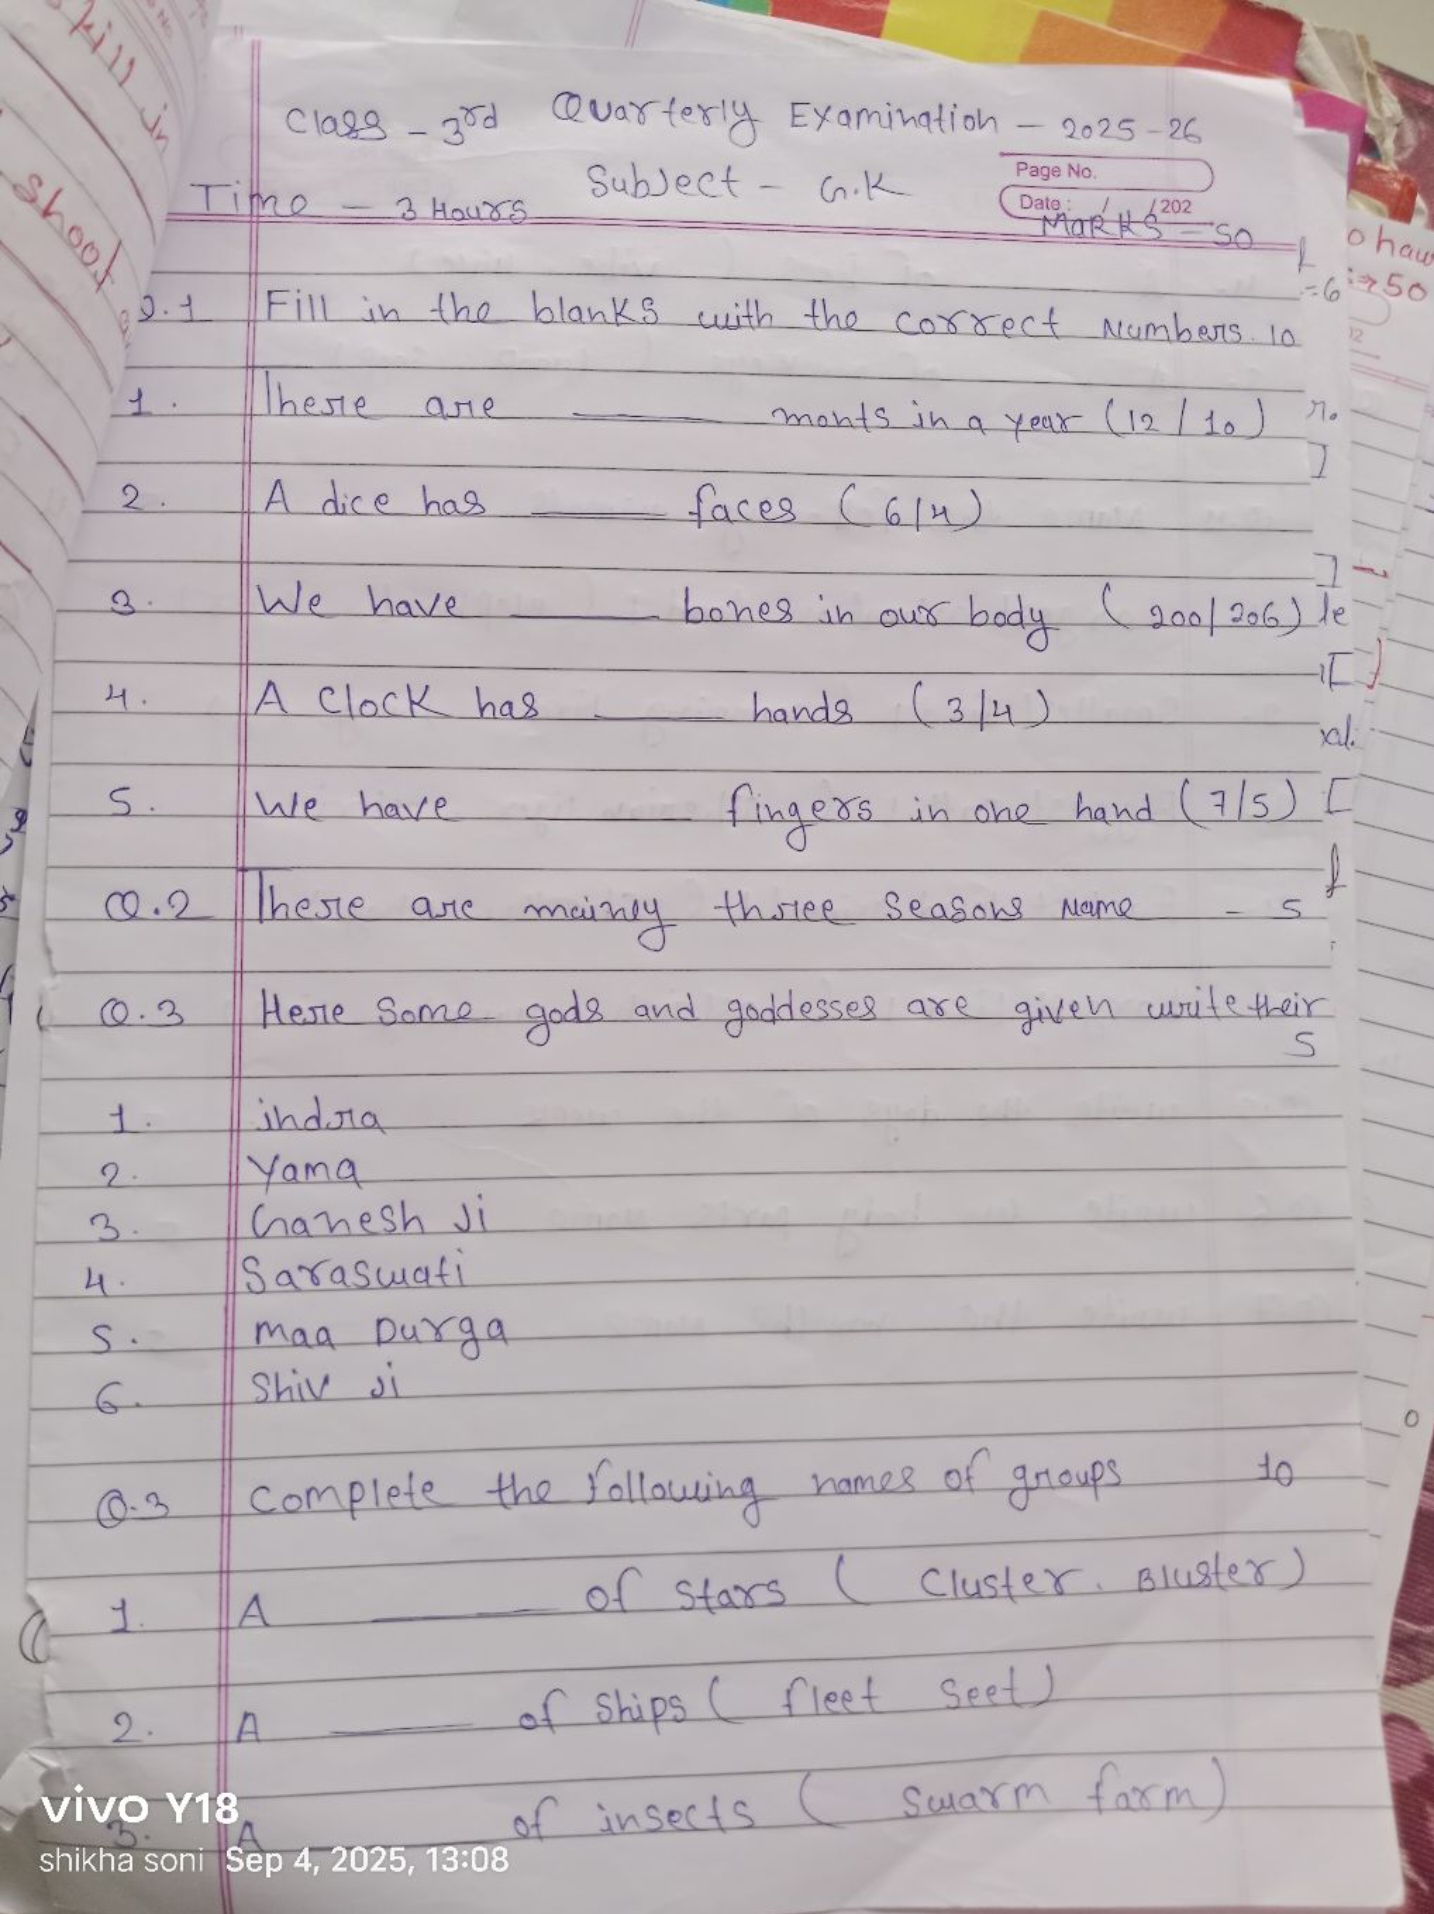 kill in
shoot
Class - 3rd Quarterly Examination - 2025-26
Subject - G.K
Page No.
Date: / /202
Time - 3 Hours
Marks - 50
Q.1 Fill in the blanks with the correct Numbers. 10
1. There are ____ monts in a year (12 / 10)
2. A dice has ____ faces (6/4)
3. We have ____ bones in our body (200/206)
4. A Clock has ____ hands (3/4)
5. We have ____ fingers in one hand (7/5)
Q.2 There are mainly three seasons Name - 5
Q.3 Here Some gods and goddesses are given write their
5
1. indra
2. Yama
3. Ganesh Ji
4. Saraswati
5. Maa Durga
6. Shiv Ji
Q.3 Complete the following names of groups 10
1. A ____ of stars (Cluster. Bluster)
2. A ____ of ships (fleet seet)
3. A ____ of insects (swarm farm)
vivo Y18
shikha soni Sep 4, 2025, 13:08